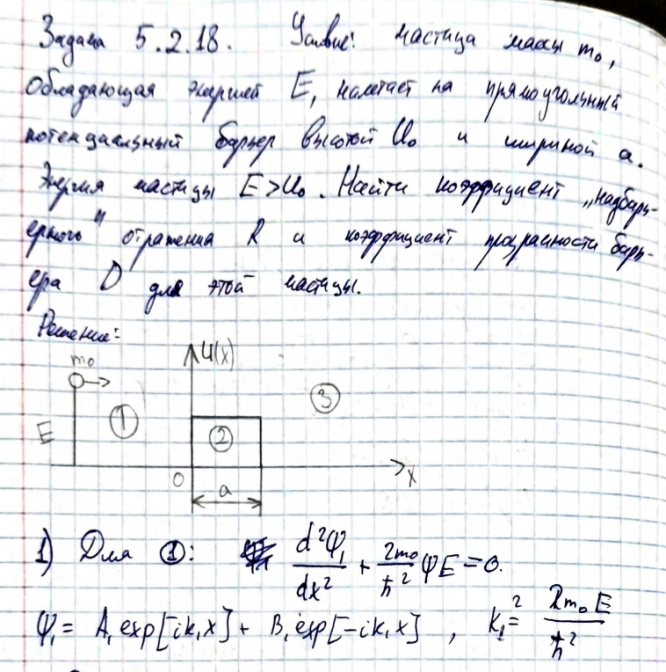 Задача 5.2.18. Условие: частица массы m₀,
обладающая энергией E, налетает на прямоугольный
потенциальный барьер высотой U₀ и шириной a.
Энергия частицы E>U₀. Найти коэффициент „надбарь-
ерного" отражения R и коэффициент прозрачности барь-
ера D для этой частицы.
Решение:
m₀
U(x)
E
1
2
3
0
a
x
1) Для ①: d²ψ₁/dx² + 2m₀/ħ² ψE = 0.
ψ₁ = A₁ exp[ik₁x] + B₁ exp[-ik₁x] , k₁² = 2m₀E/ħ²